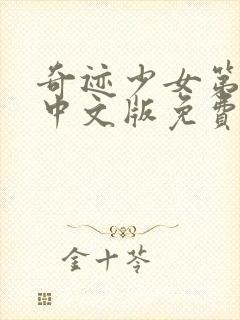 奇迹少女第
中文版免费
金十苓